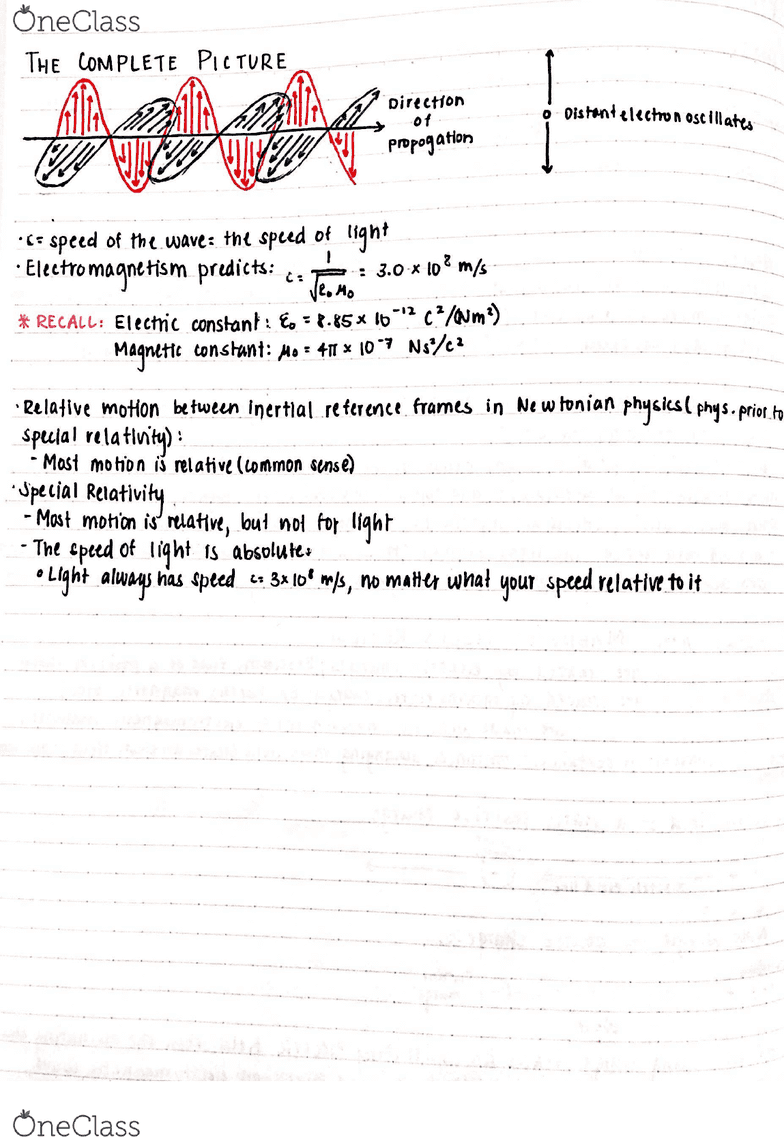 OneClass
THE COMPLETE PICTURE
Direction
of
propogation
Distant electron oscillates
· c= speed of the wave = the speed of light
· Electromagnetism predicts: c = 1/√ε₀ μ₀ = 3.0 × 10⁸ m/s
* RECALL: Electric constant: ε₀ = 8.85 × 10⁻¹² C²/(Nm²)
Magnetic constant: μ₀ = 4π × 10⁻⁷ Ns²/c²
· Relative motion between inertial reference frames in Newtonian physics (phys. prior to
special relativity):
- Most motion is relative (common sense)
· Special Relativity
- Most motion is relative, but not for light
- The speed of light is absolute:
° Light always has speed c= 3×10⁸ m/s, no matter what your speed relative to it
OneClass